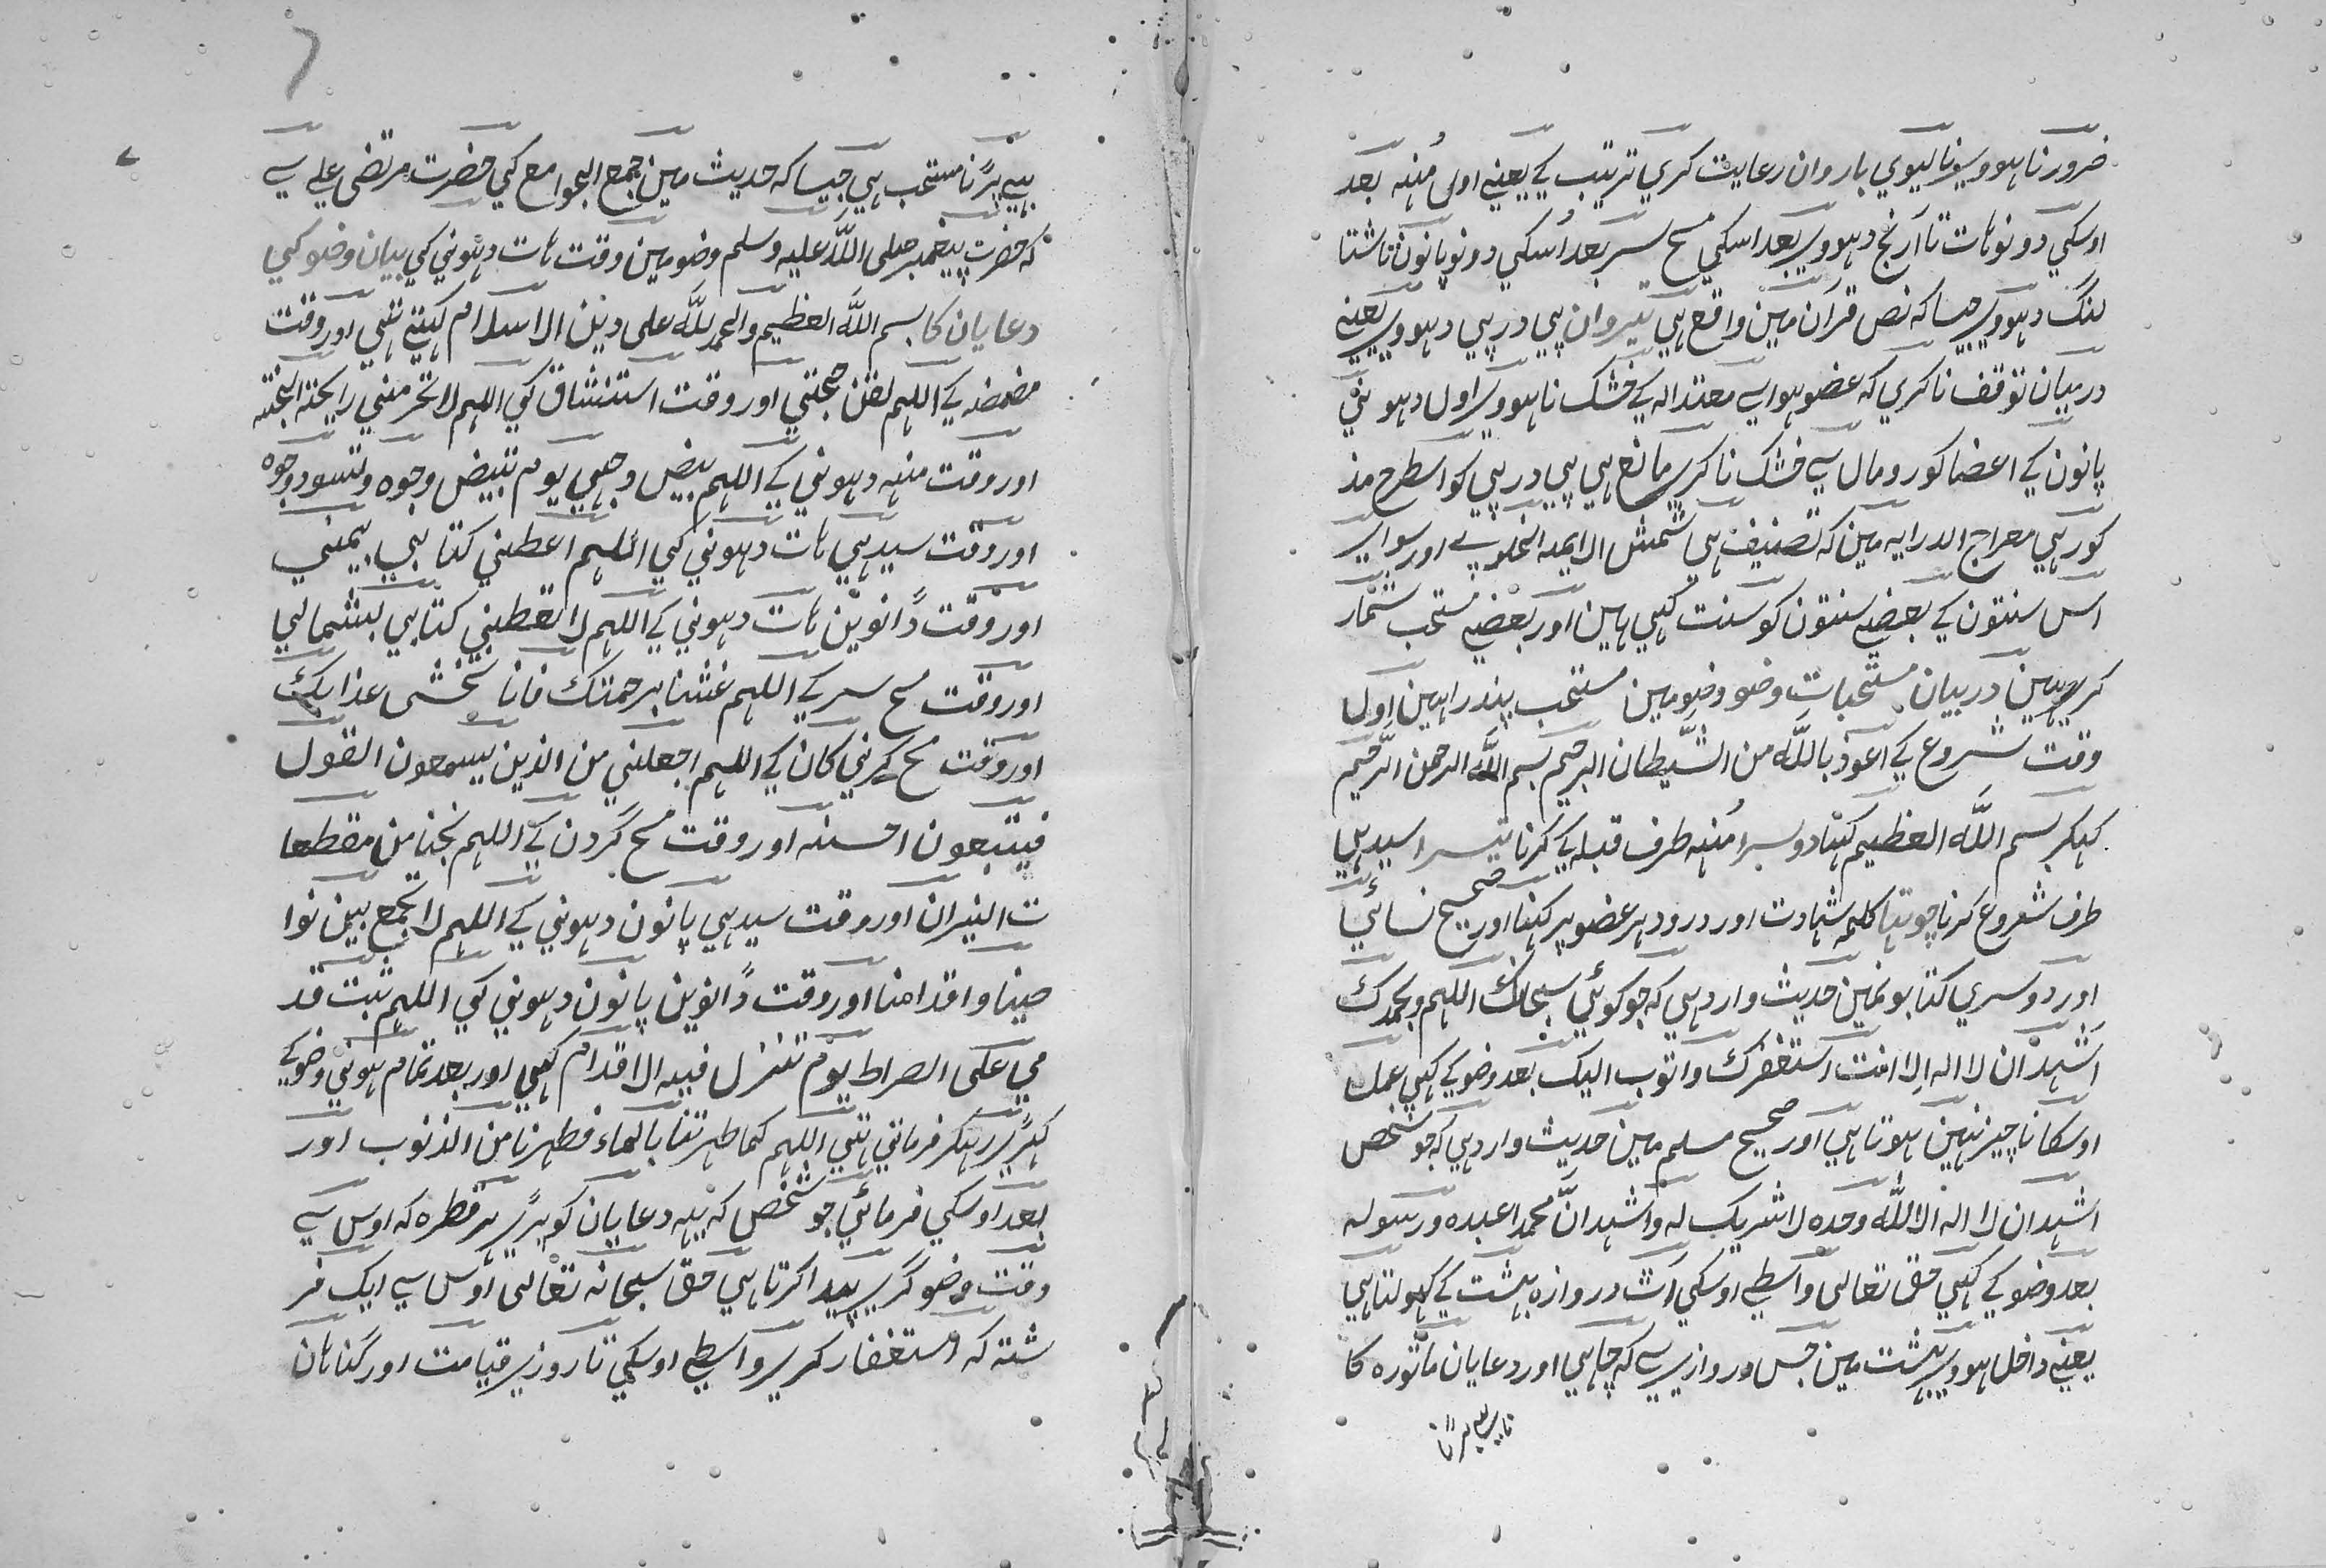 ضرور ناہووی سو نا لیوی باروان رعایت کری ترتیب کے یعنے اول مُنہ بعد
اوسکی دونو ہات تا آرنج دہووی بعد اسکی مسح سر بعد اُسکی دونو پانون تا شتا
لنگ دہووی جیسا کہ نص قرآن مین واقع ہی تیروان پی در پی دہووی یعنے
درمیان توقف نا کری کہ عضو ہوای معتدالہ کے خشک نا ہووی اول دہونی
پانون کے اعضا کو رومال سے خشک نا کری مانع ہی پی در پی کو اسطرح مذ
کور ہی معراج الدرایہ مین کہ تصنیف ہی شمش الایمہ الحلوی اور سوای
اس سنتون کے بعضے سنتون کو سنت کہی ہین اور بعضے مستحب شمار
کری ہین در بیان مستحبات وضو وضو مین مستحب پندرا ہین اول
وقت شروع کے اعوذ باللّٰہ من الشیّطان الرجیم بسم اللّٰہ الرحمن الرّحیم
کہکر بسم اللّٰہ العظیم کہنا دوسرا مُنہ طرف قبلہ کے کرنا تیسرا سیدہی
طرف شعروع کرنا چوتہا کلمہ شہادت اور درود ہر عضو پر کہنا اور صحیح نسائی
اور دوسری کتابونمین حدیث وارد ہی کہ جو کوئی سبحانک اللہم وبحمدک
اشہد ان لا الہ الا انت استغفرک واتوب الیک بعد وضو کے کہی عمل
اوسکا ناچیز نہین ہوتا ہی اور صحیح مسلم مین حدیث وارد ہی کہ جو شخص
اشہد ان لا الہ الا اللّٰہ وحدہ لا شریک لہ واشہد انّ محمدا عبدہ ورسولہ
بعد وضو کے کہی حق تعالی واسطی اوسکی آٹ دروازہ بہشت کے کہولتا ہی
یعنے داخل ہووی بہشت مین جس دروازی سے کہ چاہی اور دعایان ماثورہ کا
بہی پڑنا مستحب ہی جیسا کہ حدیث مین جمع الجوامع کی حضرت مرتضی علے سے
کہ حضرت پیغمبر صلی اللّٰہ علیہ وسلم وضو مین وقت ہات دہونی کی بیان وضو کی
دعایان کا بسم اللّٰہ العظیم والحمد للّٰہ علی دین الاسلام کہتے تہی اور وقت
مضمضہ کے اللہم لقن حجتی اور وقت استنشاق کی اللہم لا تحرمنی رایحتہ الجنتہ
اور وقت منہ دہونی کے اللہم بیض وجہی یوم تبیض وجوہ وتسود وجوہ
اور وقت سیدہی ہات دہونی کی اللہم اعطنی کتابی بیمنی
اور وقت ڈانوین ہات دہونی کے اللہم لا تعطنی کتابی بشمالی
اور وقت مسح سر کے اللہم غشنا برحمتک فانا نخشی عذابک
اور وقت مسح کرنی کان کے اللہم اجعلنی من الذین یسمعون القول
فیتبعون احسنہ اور وقت مسح گردن کے اللہم نجنا من مقطعا
ت النیران اور وقت سیدہی پانون دہونی کے اللہم لا تجمع بین نوا
صینا واقدامنا اور وقت ڈانوین پانون دہونی کی اللہم ثبت قد
می علی الصراط یوم تنزل فیہ الاقدام کہی اور بعد تمام ہونی وضو کے
کہڑی رہکر فرماتی تہی اللہم کما طہرتنا بالماء فطہرنا من الذنوب اور
بعد اوسکی فرمائی جو شخص کہ یہہ دعایان کو پڑی ہر قطرہ کہ اوس سے
وقت وضو گری پیدا کرتا ہی حق سبحانہ تعالی اوس سے ایک فر
شتہ کہ استغفار کری واسطی اوسکی تا روز قیامت اور گناہان